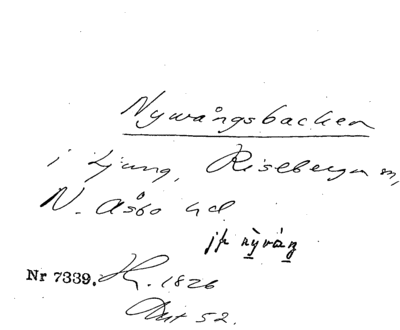 Nywångsbacken
i Ljung, Riseberga sn,
N. Åsbo hd
jfr nỳvàŋ
Nr 7339. 1826
52.